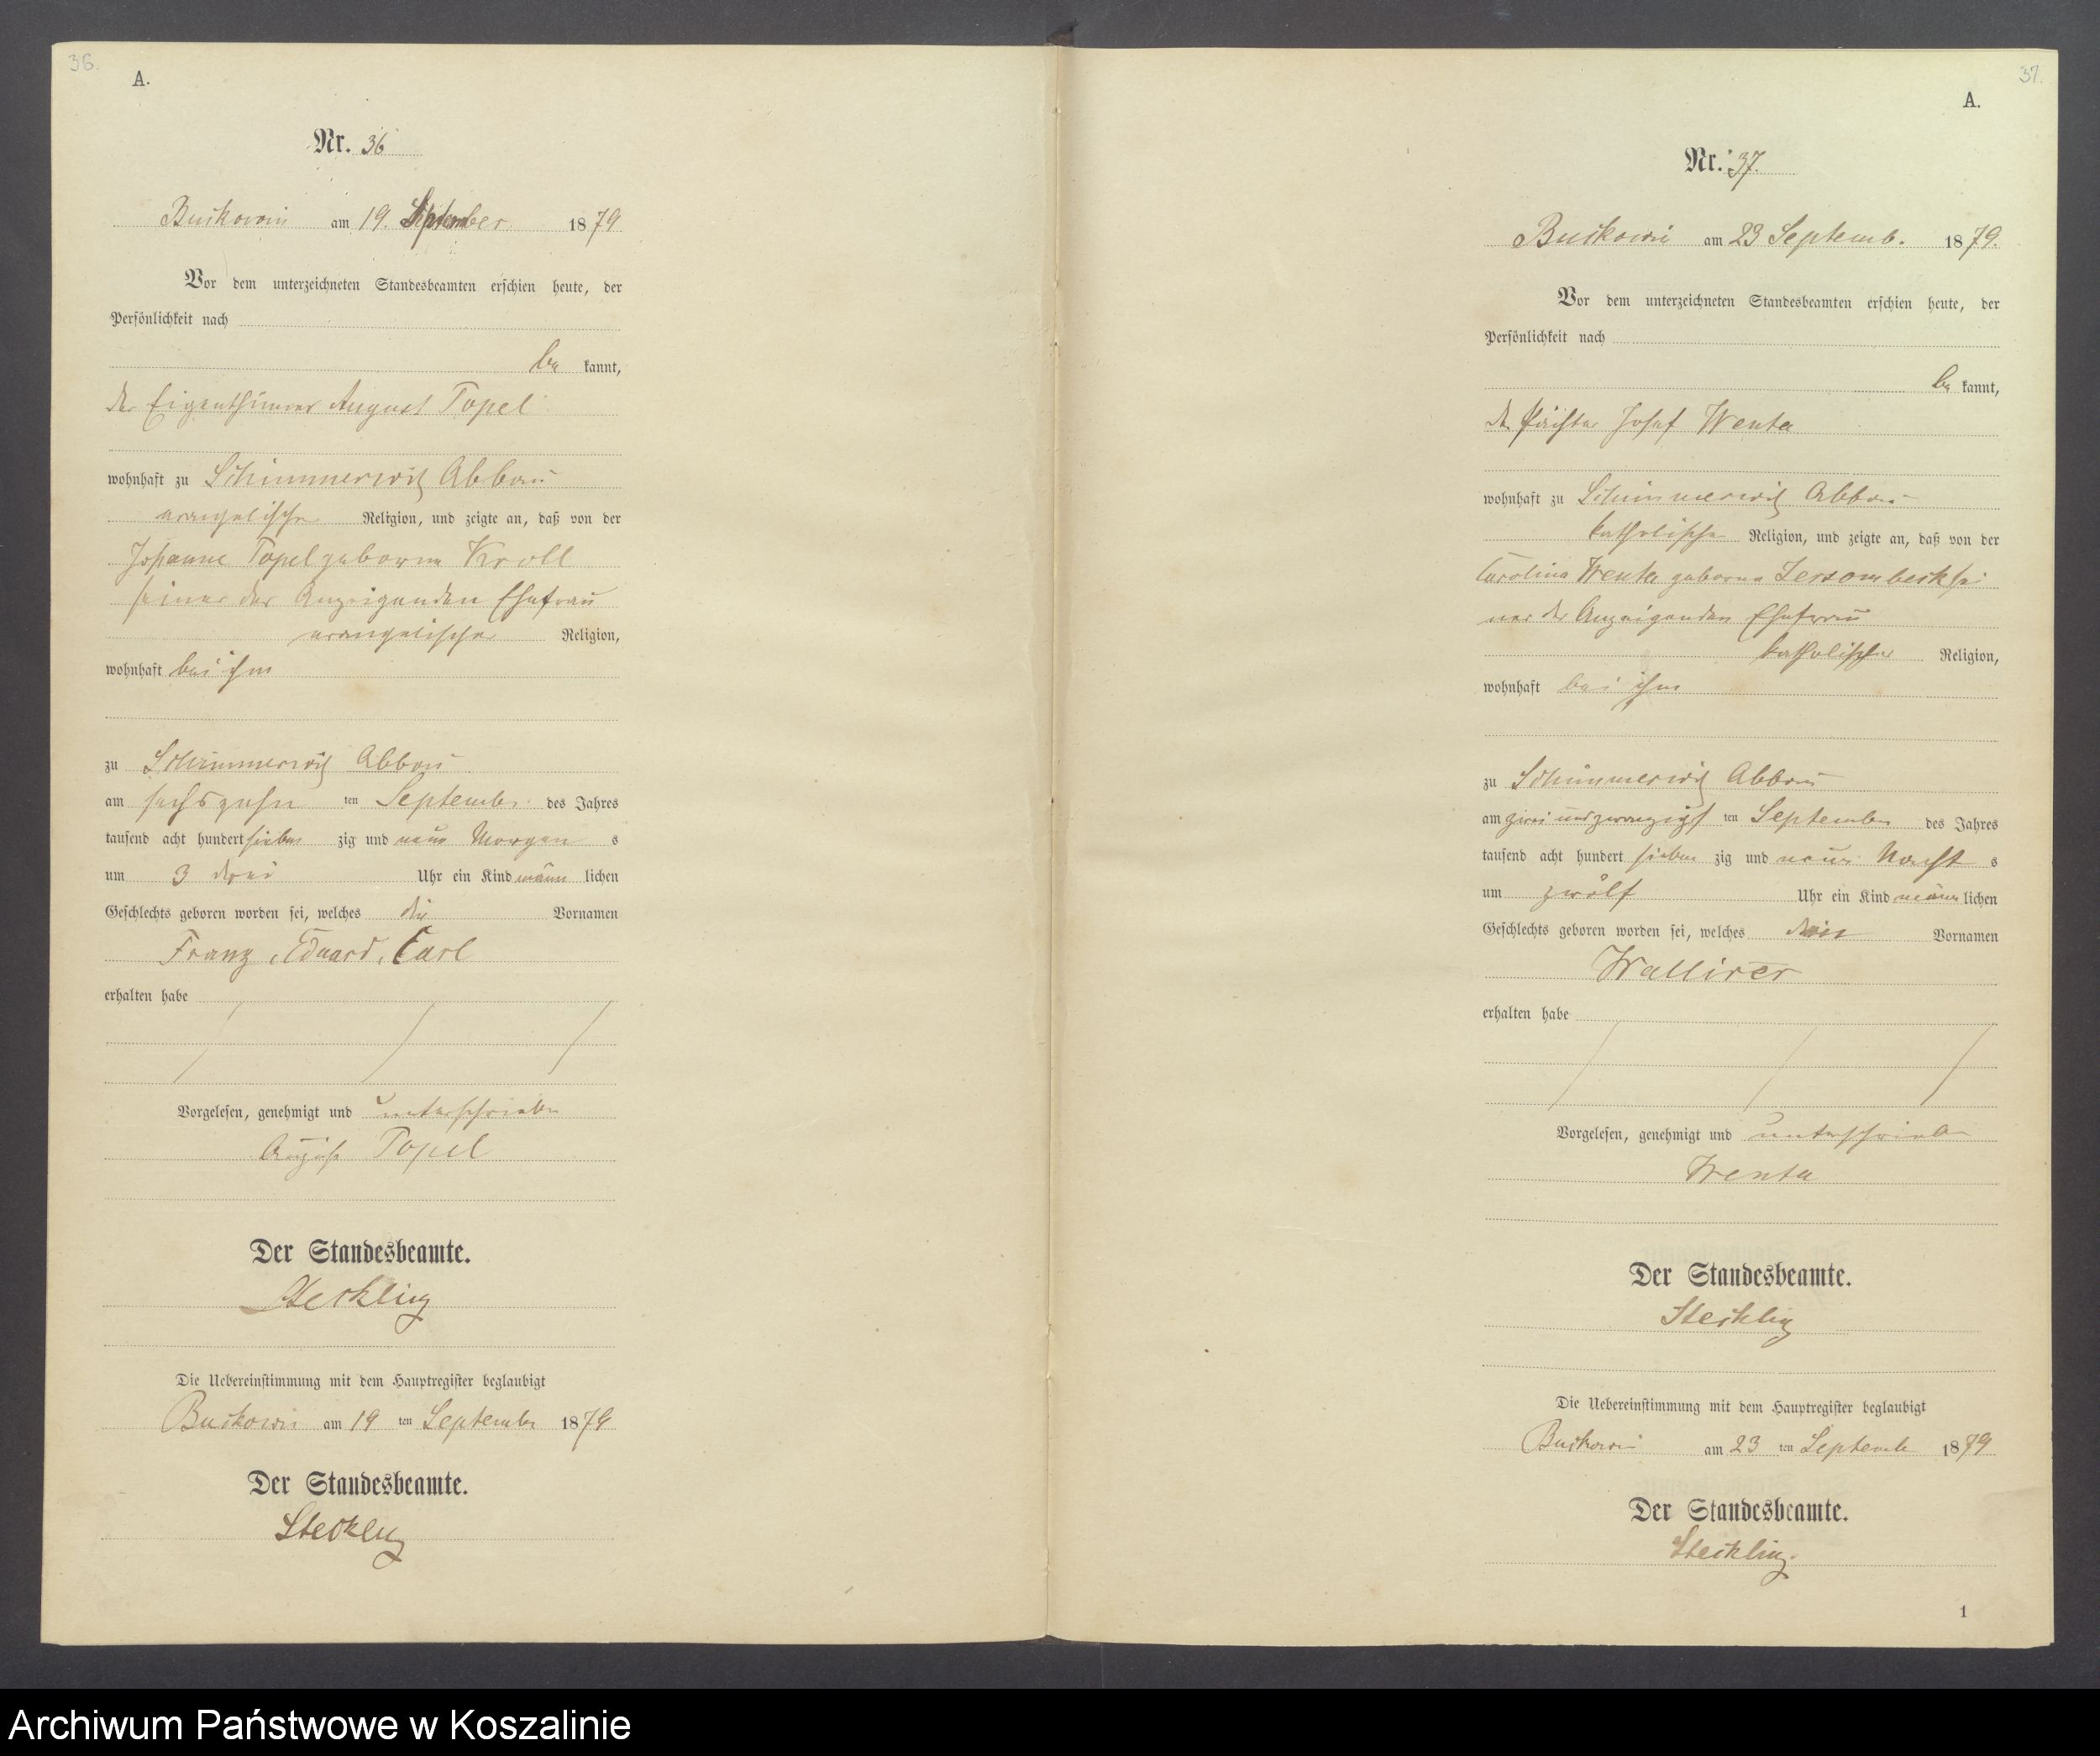 36.
A.
Nr. 36
Buckowin am 19. September 1879
Vor dem unterzeichneten Standesbeamten erschien heute, der
Persönlichkeit nach
be kannt,
der Eigenthümer August Topel
wohnhaft zu Schimmerwitz Abbau
evangelischer Religion, und zeigte an, daß von der
Johanne Topel geborne Kroll
seiner des Anzeigenden Ehefrau
evangelischer Religion,
wohnhaft bei ihm
zu Schimmerwitz Abbau
am sechszehn ten September des Jahres
tausend acht hundert sieben zig und neun Morgen s
um 3 drei Uhr ein Kind männ lichen
Geschlechts geboren worden sei, welches die Vornamen
Franz, Eduard, Carl
erhalten habe
Vorgelesen, genehmigt und unterschrieben
August Topel
Der Standesbeamte.
Steckling
Die Uebereinstimmung mit dem Hauptregister beglaubigt
Buckowin am 19 ten September 1879
Der Standesbeamte.
Steckling
37.
A.
Nr. 37.
Buckowin am 23 Septemb. 1879.
Vor dem unterzeichneten Standesbeamten erschien heute, der
Persönlichkeit nach
be kannt,
der Pächter Josef Wenta
wohnhaft zu Schimmerwitz Abbau
katholischer Religion, und zeigte an, daß von der
Carolina Wenta geborne sei
ner des Anzeigenden Ehefrau
katholischer Religion,
wohnhaft bei ihm
zu Schimmerwitz Abbau
am zwei und zwanzigs ten September des Jahres
tausend acht hundert sieben zig und neun Nacht s
um zwölf Uhr ein Kind männ lichen
Geschlechts geboren worden sei, welches den Vornamen
erhalten habe
Vorgelesen, genehmigt und unterschrieben
Wenta
Der Standesbeamte.
Steckling
Die Uebereinstimmung mit dem Hauptregister beglaubigt
Buckowin am 23 ten Septemb 1879
Der Standesbeamte.
Steckling.
1
Archiwum Państwowe w Koszalinie